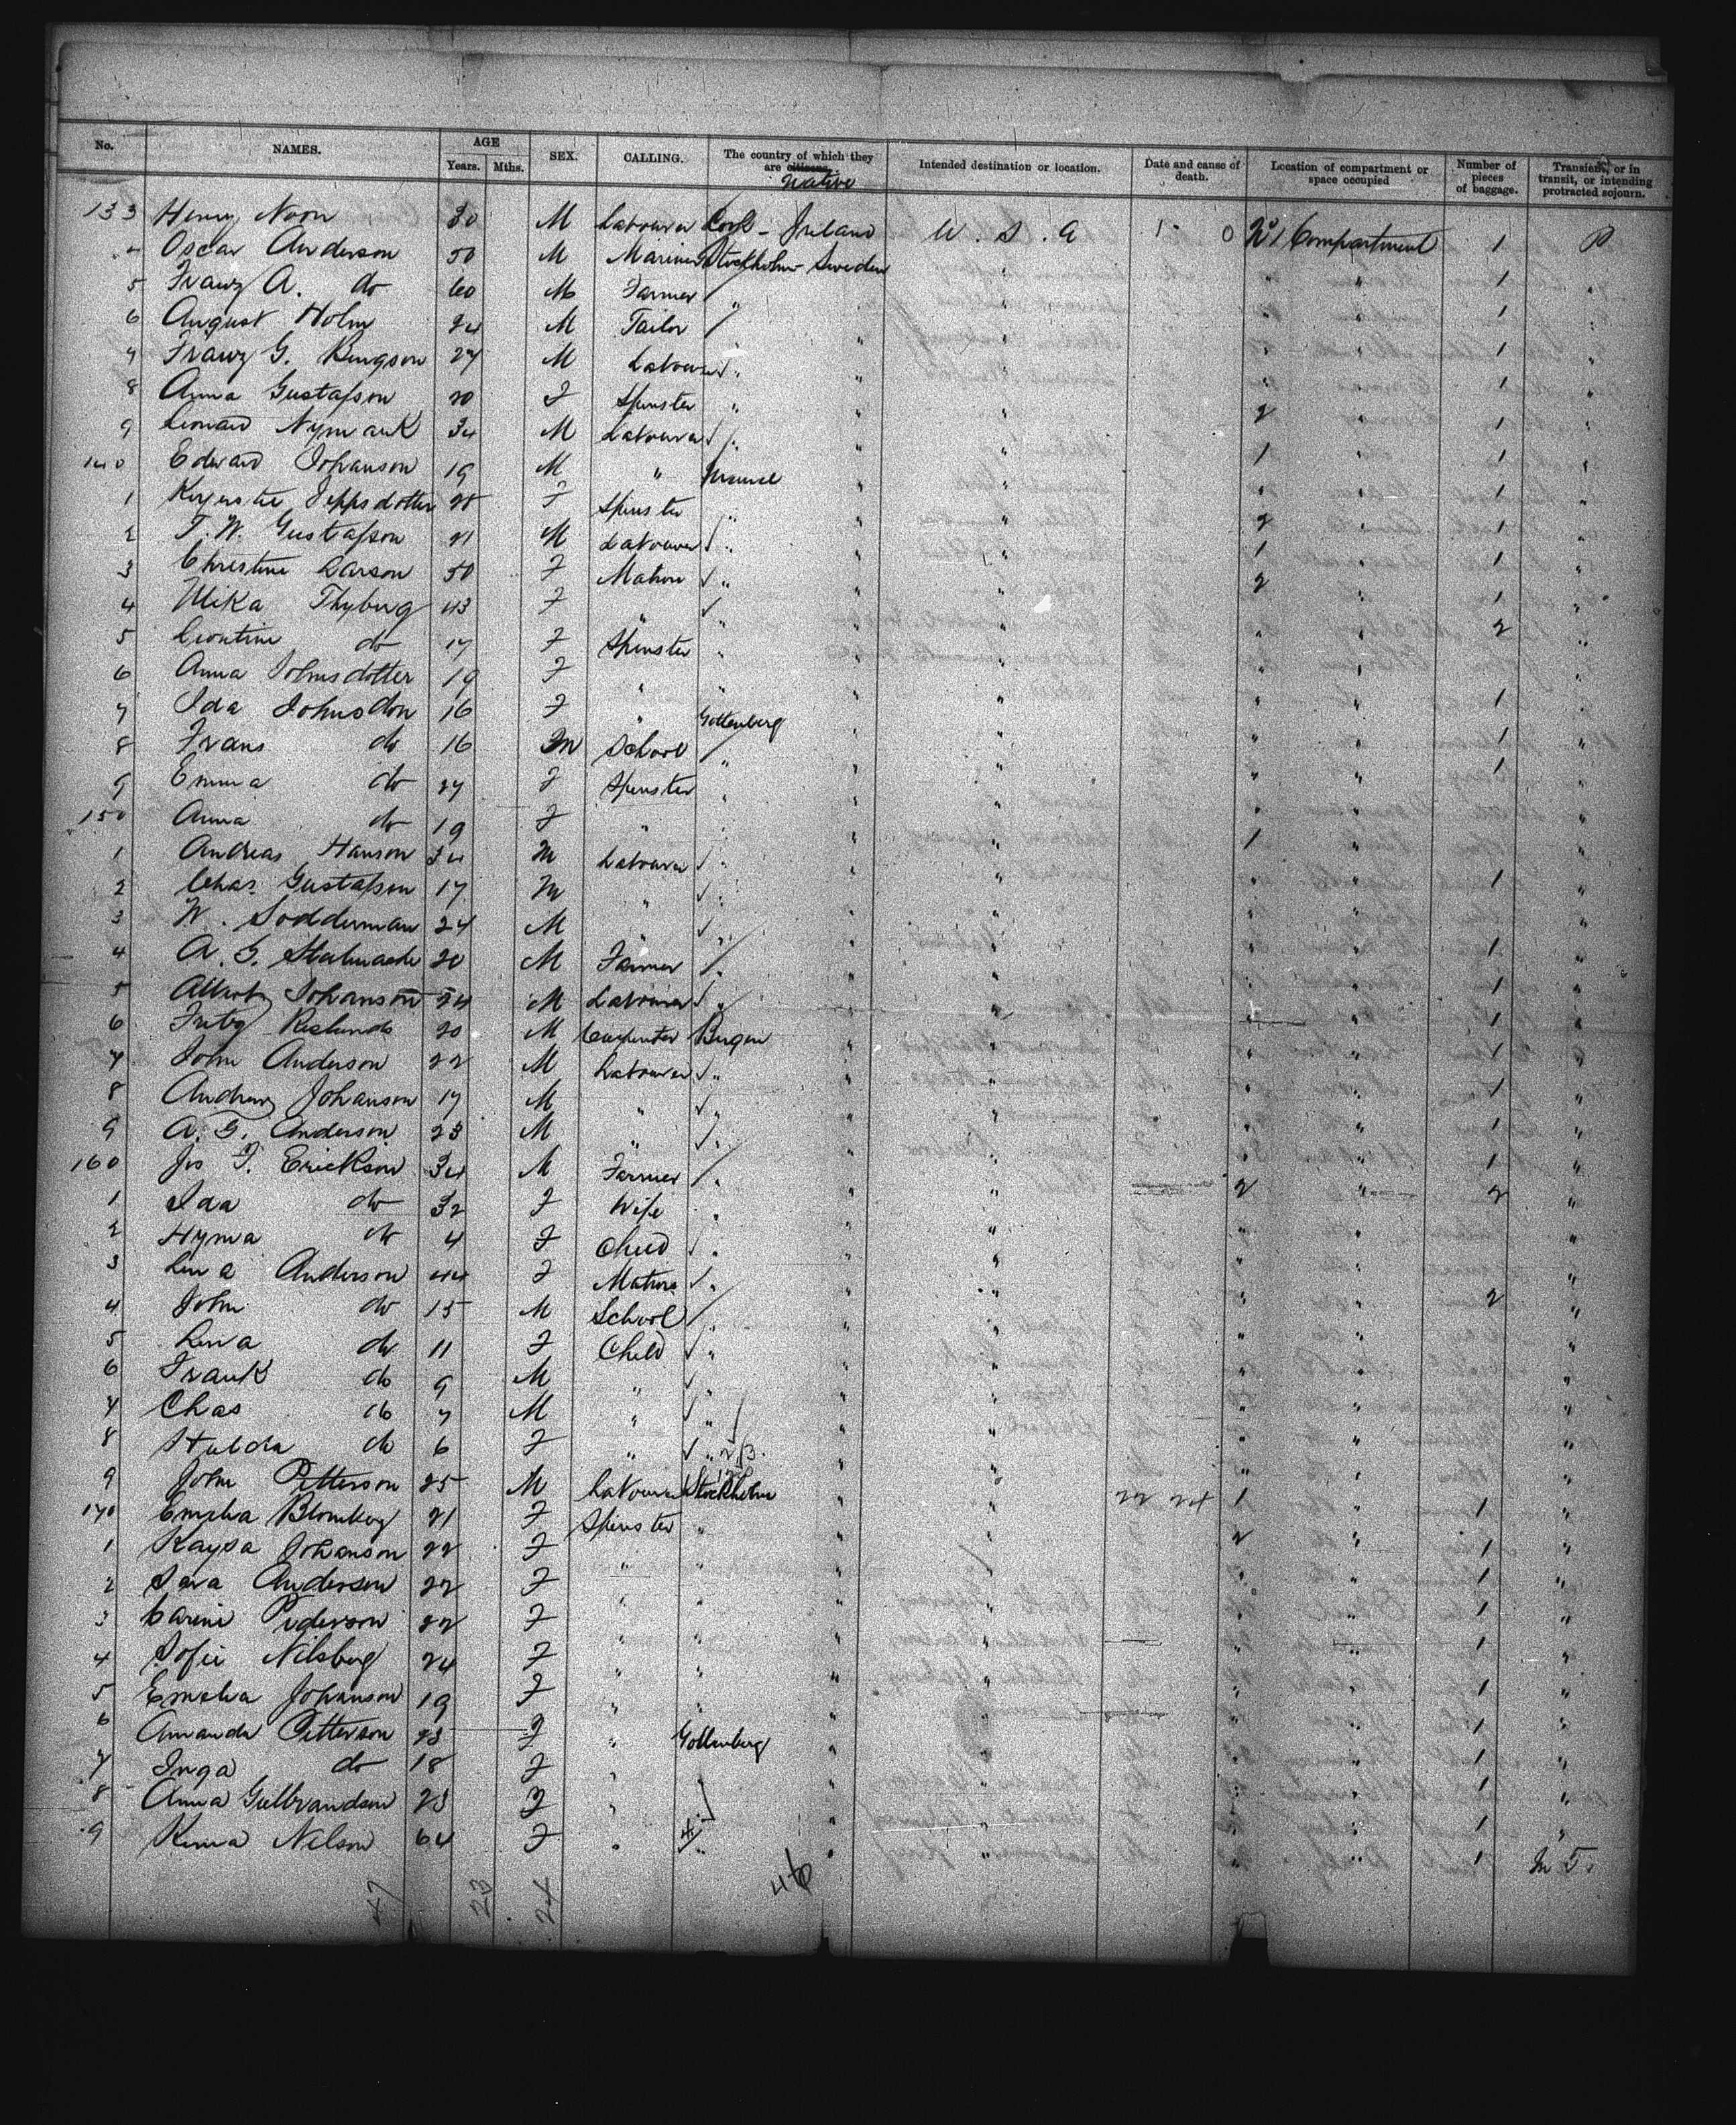 No. NAMES. AGE Years. Mths. SEX. CALLING. The country of which they are citizens. Native Intended destination or location. Date and cause of death. Location of compartment or space occupied Number of pieces of baggage. Transient, or in transit, or intending protracted sojourn.
133 Henry Noon 30 M Labourer Cork - Ireland U.S.A 1 0 No 1 Compartment 1 P
4 Oscar Anderson 50 M Mariner Stockholm Sweden " " " 1 "
5 Franz A. do 60 M Farmer " " " " " 1 "
6 August Holm 24 M Tailor " " " " 1 "
7 Franz G. Bengson 27 M Labourer " " " " " 1 "
8 Anna Gustafson 20 F Spinster " " " 2 " 1 "
9 Leonard Nymark 34 M Labourer " " " 1 " 1 "
140 Edward Johanson 19 M " " " " " 1 "
1 Jeppsdotter 28 F Spinster " " " 2 " 1 "
2 T.W. Gustafson 21 M Labourer " " " 1 " 1 "
3 Christine Larson 50 F Matron " " " 2 " 1 "
4 Ulika Thyberg 43 F " " " " " " 2 "
5 Leontine do 17 F Spinster " " " " " "
6 Anna Johnsdotter 19 F " " " " " " 1 "
7 Ida Johnsdon 16 F " Gottenberg " " " " 1 "
8 Frans do 16 M School " " " " " 1 "
9 Emma do 27 F Spinster " " " " " "
150 Anna do 19 F " " " " 1 " "
1 Andreas Hanson 34 M Labourer " " " " " 1 "
2 Chas. Gustafson 17 M " " " " " " "
3 W. Sodderman 24 M " " " " " " 1 "
4 A.G. 20 M Farmer " " " " " 1 "
5 Johanson 24 M Labourer " " " " " 1 "
6 20 M Carpenter Bergen " " " " 1 "
7 John Anderson 22 M Labourer " " " " " 1 "
8 Andrew Johanson 17 M " " " " " " 1 "
9 A.G. Anderson 23 M " " " " " " 1 "
160 Jos F. Erickson 34 M Farmer " " " 2 " 2 "
1 Ida do 32 F Wife " " " " " "
2 Hyma do 4 F Child " " " " " "
3 Lena Anderson 44 F Matron " " " " " 2 "
4 John do 15 M School " " " " " "
5 Lena do 11 F Child " " " " " "
6 Frank do 9 M " " " " " " "
7 Chas do 7 M " " " " " " "
8 Hulda do 6 F " " 23. " " " " "
9 John Petterson 25 M Labourer Stockholm " " 22 24 1 " 1 "
170 Emelia Blomberg 21 F Spinster " " " 2 " 1 "
1 Kaysa Johanson 22 F " " " " " " 1 "
2 Sara Anderson 22 F " " " " " " 1 "
3 Carine Pederson 22 F " " " " " " 1 "
4 Sofie Nilsberg 24 F " " " " " " 1 "
5 Emelia Johanson 19 F " " " " " " 1 "
6 Amanda Petterson 23 F " Gottenberg " " " " 1 "
7 Inga do 18 F " " " " " 1 "
8 Anna Gulbrandson 23 F " " " " " 1 "
9 Nelson 64 F " 4 " " " " " 1 In T.
47 23 24 46